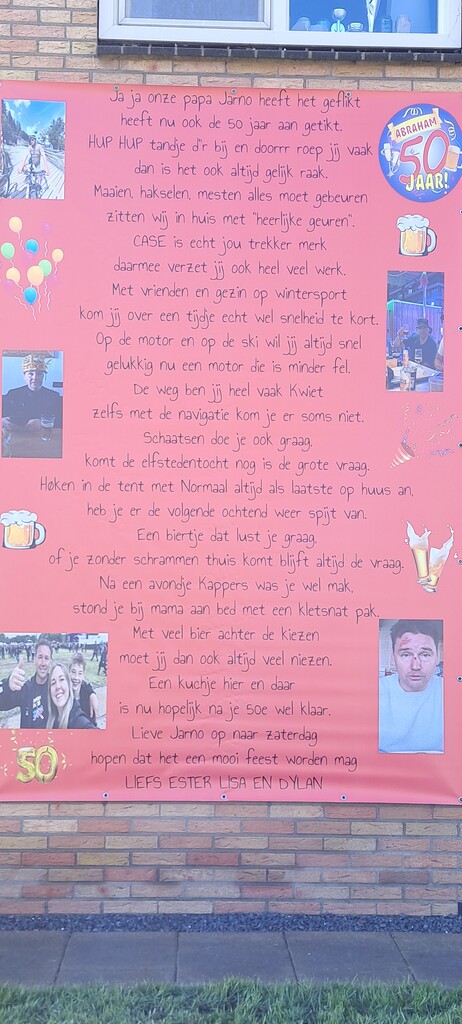 Ja ja onze papa Jarno heeft het geflikt
heeft nu ook de 50 jaar aan getikt.
HUP HUP tandje d'r bij en doorrr roep jij vaak
dan is het ook altijd gelijk raak.
Maaien, hakselen, mesten alles moet gebeuren
zitten wij in huis met "heerlijke geuren".
CASE is echt jou trekker merk
daarmee verzet jij ook heel veel werk.
Met vrienden en gezin op wintersport
kom jij over een tijdje echt wel snelheid te kort.
Op de motor en op de ski wil jij altijd snel
gelukkig nu een motor die is minder fel.
De weg ben jij heel vaak Kwiet
zelfs met de navigatie kom je er soms niet.
Schaatsen doe je ook graag,
komt de elfstedentocht nog is de grote vraag.
Høken in de tent met Normaal altijd als laatste op huus an,
heb je er de volgende ochtend weer spijt van.
Een biertje dat lust je graag,
of je zonder schrammen thuis komt blijft altijd de vraag.
Na een avondje Kappers was je wel mak,
stond je bij mama aan bed met een kletsnat pak.
Met veel bier achter de kiezen
moet jij dan ook altijd veel niezen.
Een kuchje hier en daar
is nu hopelijk na je 50e wel klaar.
Lieve Jarno op naar zaterdag
hopen dat het een mooi feest worden mag
LIEFS ESTER LISA EN DYLAN
ABRAHAM
50
JAAR!
50